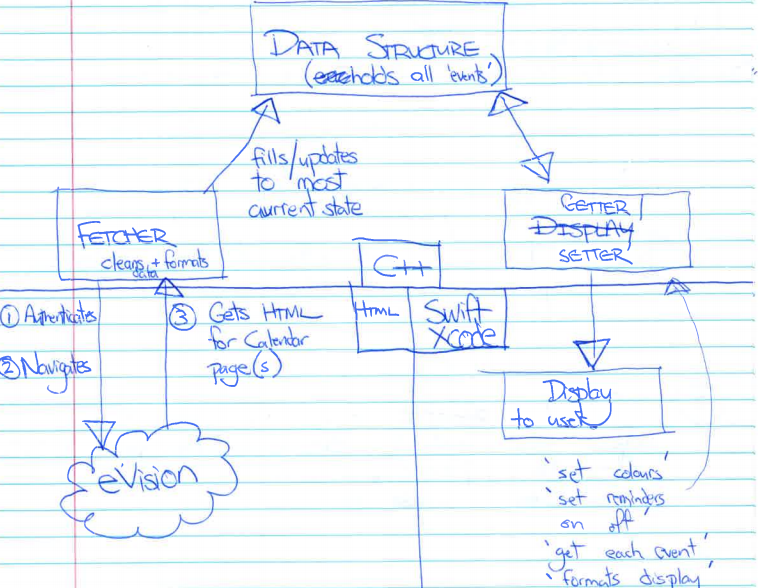 DATA STRUCTURE
(holds all 'events')
fills/updates
to most
current state
FETCHER
cleans + formats
data
GETTER
DISPLAY
SETTER
C++
HTML
Swift
Xcode
① Authenticates
② Navigates
③ Gets HTML
for Calendar
page(s)
eVision
Display
to user
'set colours'
'set reminders
on off'
'get each event'
'formats display